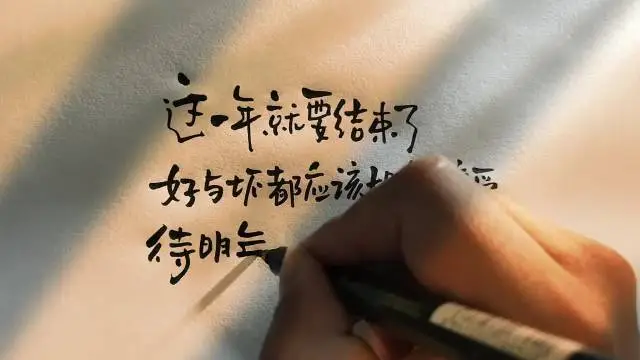 这一年就要结束了
好与坏都应该
待明年